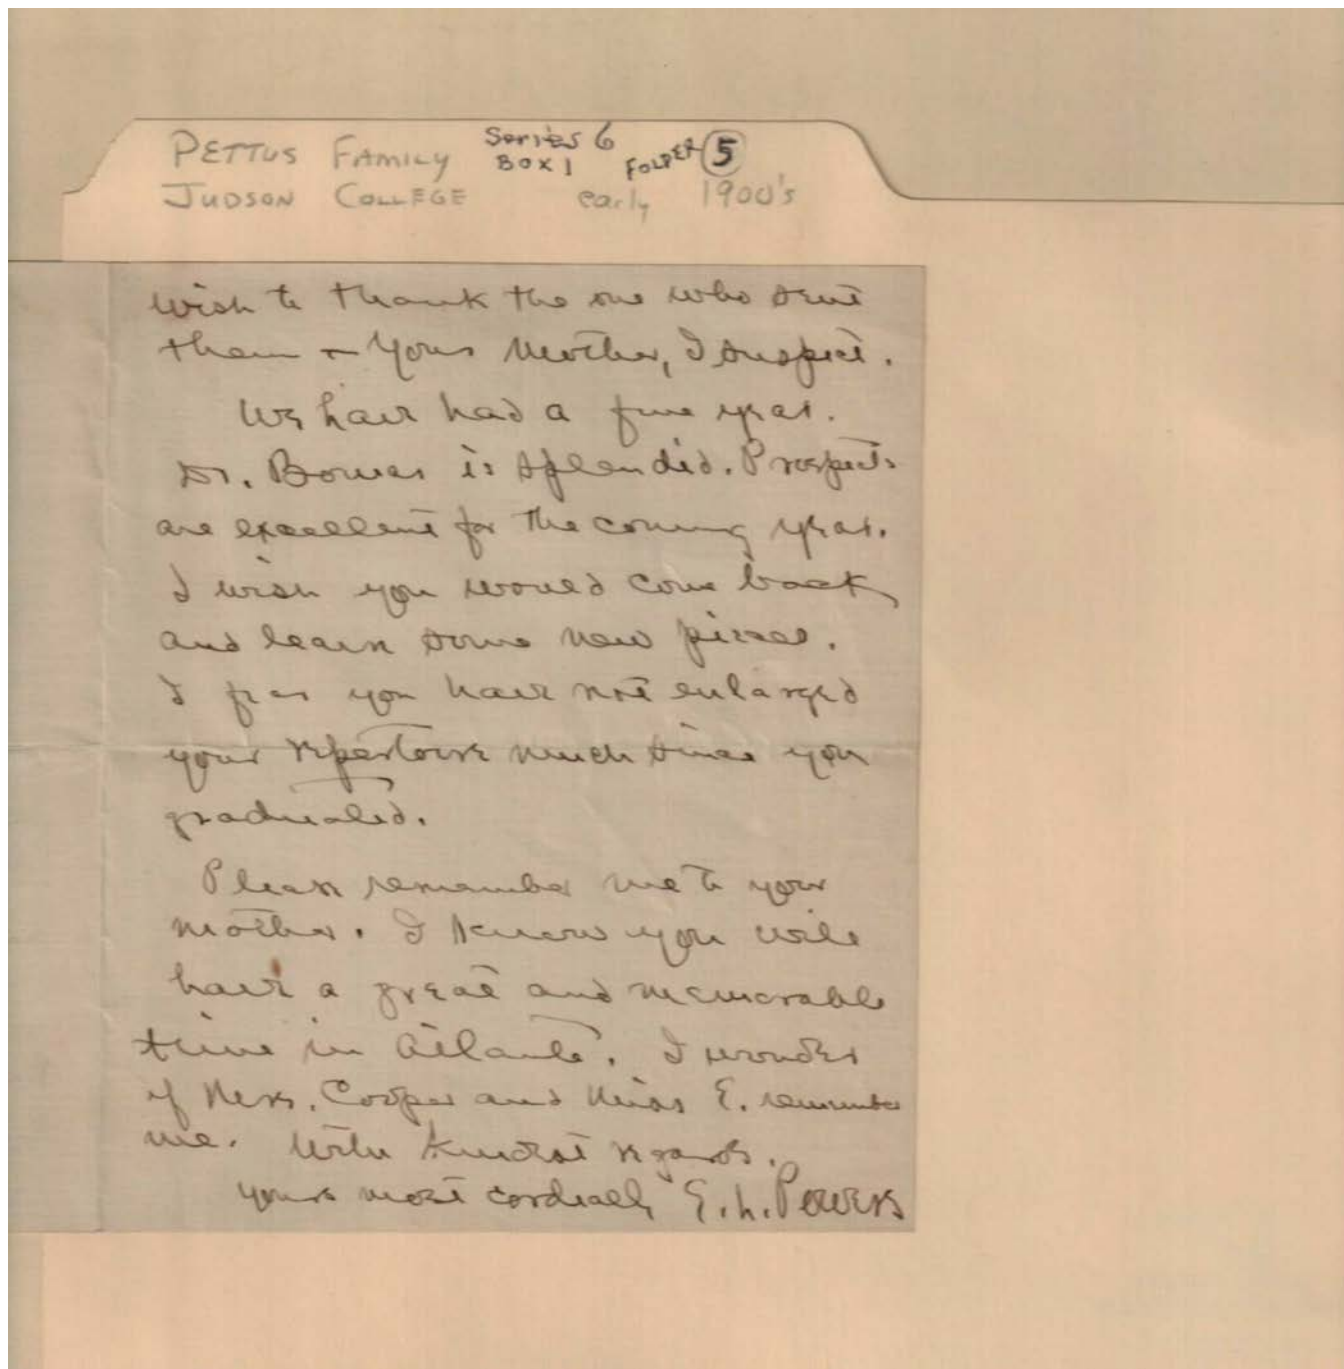 PETTUS FAMILY Series 6 BOX 1 FOLDER 5
JUDSON COLLEGE early 1900's
wish to thank the one who sent
them – Your Mother, I suspect.
We have had a fine year.
Dr. Bower is splendid. Prospects
are excellent for the coming year.
I wish you would come back
and learn some new pieces.
I fear you have not enlarged
your repertoire much since you
graduated.
Please remember me to your
mother. I know you will
have a great and memorable
time in Atlanta. I wonder
if Mrs. Cooper and Miss E. remember
me. With kindest regards.
yours most cordially E. L. Powers